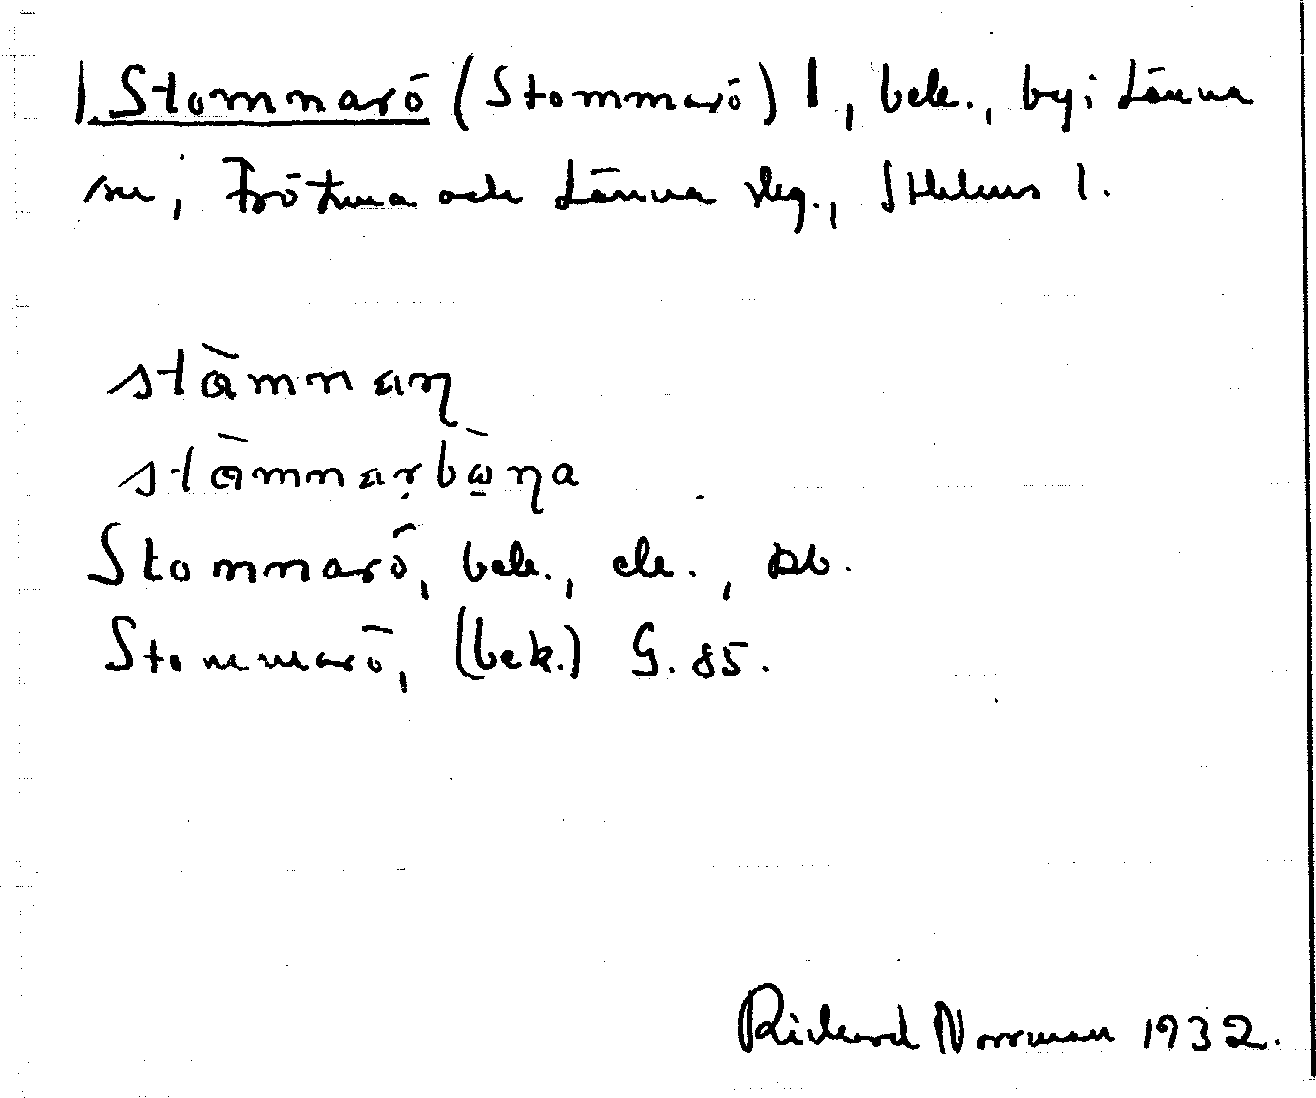 Stomnarö (Stommarö) 1, bek., by i Länna
sn, Frötuna och Länna slg., Sthlms l.
stàmnaƞ
stàmnaṛbὼƞa
Stomnarö, bek., ek., Db.
Stommarö, (bek.) G. 85.
Rickard Norrman 1932.